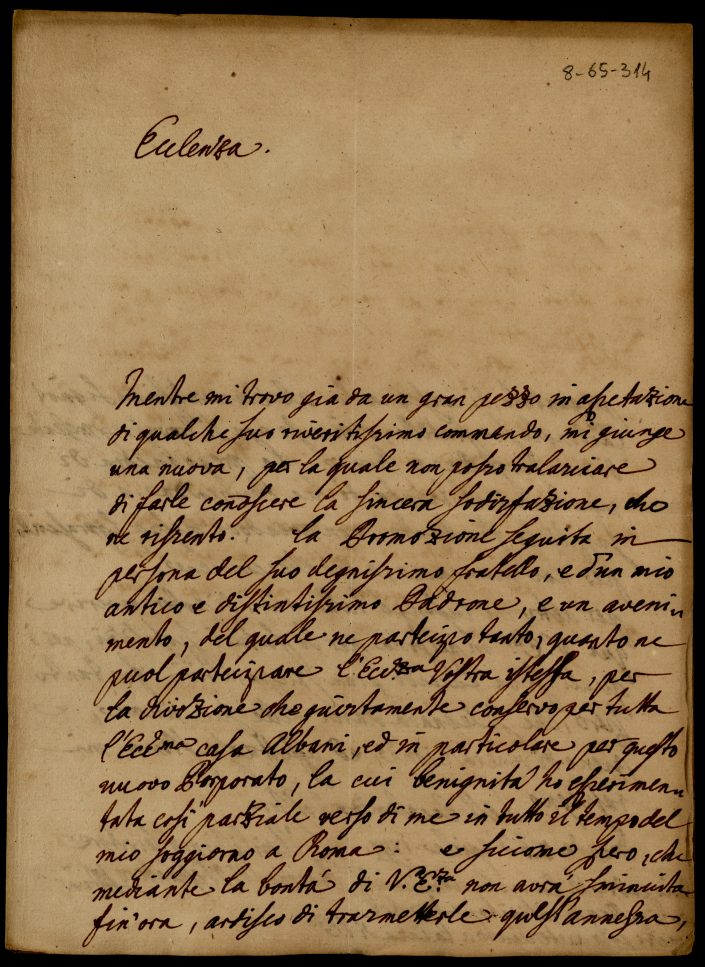 8-65-314
Ecclenza.
Mentre mi trovo già da un gran pezzo in aspetazione
di qualche suo riveritissimo commando, mi giunge
una nuova, per la quale non posso tralasciare
di farle conoscere la sincera sodisfazione, che
ne risento. la Promozione seguita in
persona del suo degnissimo fratello, e d'un mio
antico e distintissimo Padrone, e un aveni„
mento, del quale ne partecipo tanto, quanto ne
puol partecipare l'Ecc.za Vostra istessa, per
la divozione che giustamente conservo per tutta
l'Ecc.ma casa Albani, ed in particolare per questo
nuovo Porporato, la cui benignità ho esperimen„
tata così parziale verso di me in tutto il tempo del
mio soggiorno a Roma: e siccome spero, che
mediante la bontà di V.E.za non avrà sminuita
fin'ora, ardisco di trasmetterle quest'annessa,